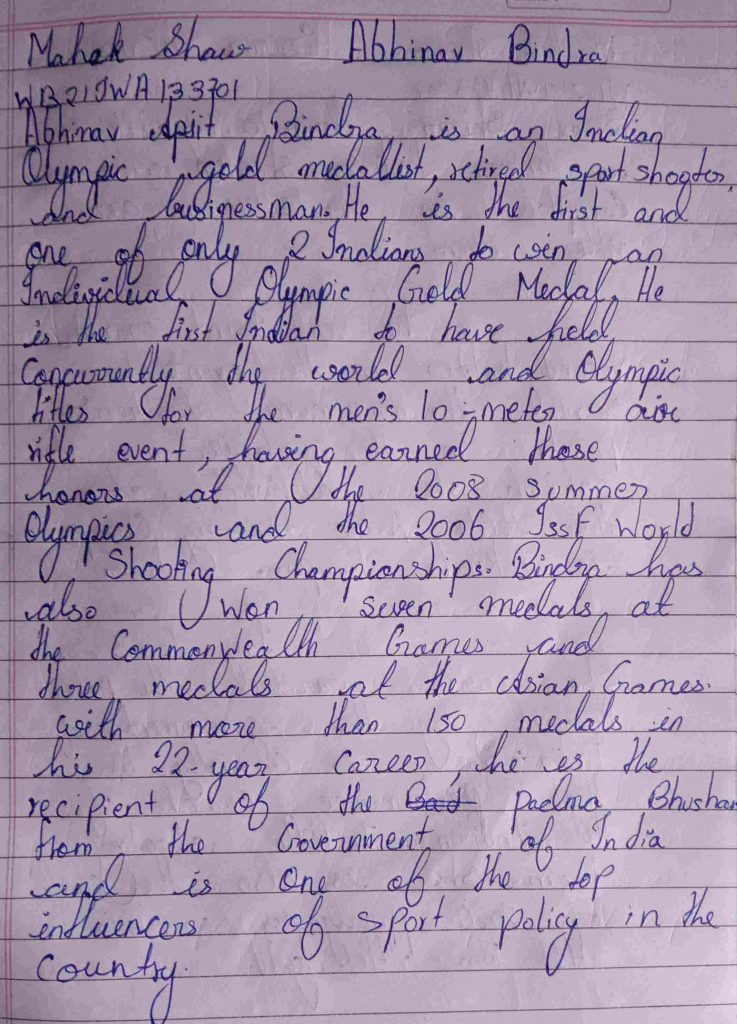 Mahek Shaw Abhinav Bindra
WB21JWA133701
Abhinav Apjit Bindra is an Indian
Olympic gold medallist, retired sport shooter,
and businessman. He is the first and
one of only 2 Indians to win an
Individual Olympic Gold Medal. He
is the first Indian to have held
Concurrently the world and Olympic
titles for the men's 10-meter air
rifle event, having earned those
honors at the 2008 Summer
Olympics and the 2006 ISSF World
Shooting Championships. Bindra has
also won seven medals at
the Commonwealth Games and
three medals at the Asian Games.
with more than 150 medals in
his 22-year Career, he is the
recipient of the Padma Bhushan
from the Government of India
and is One of the top
influencers of sport policy in the
Country.